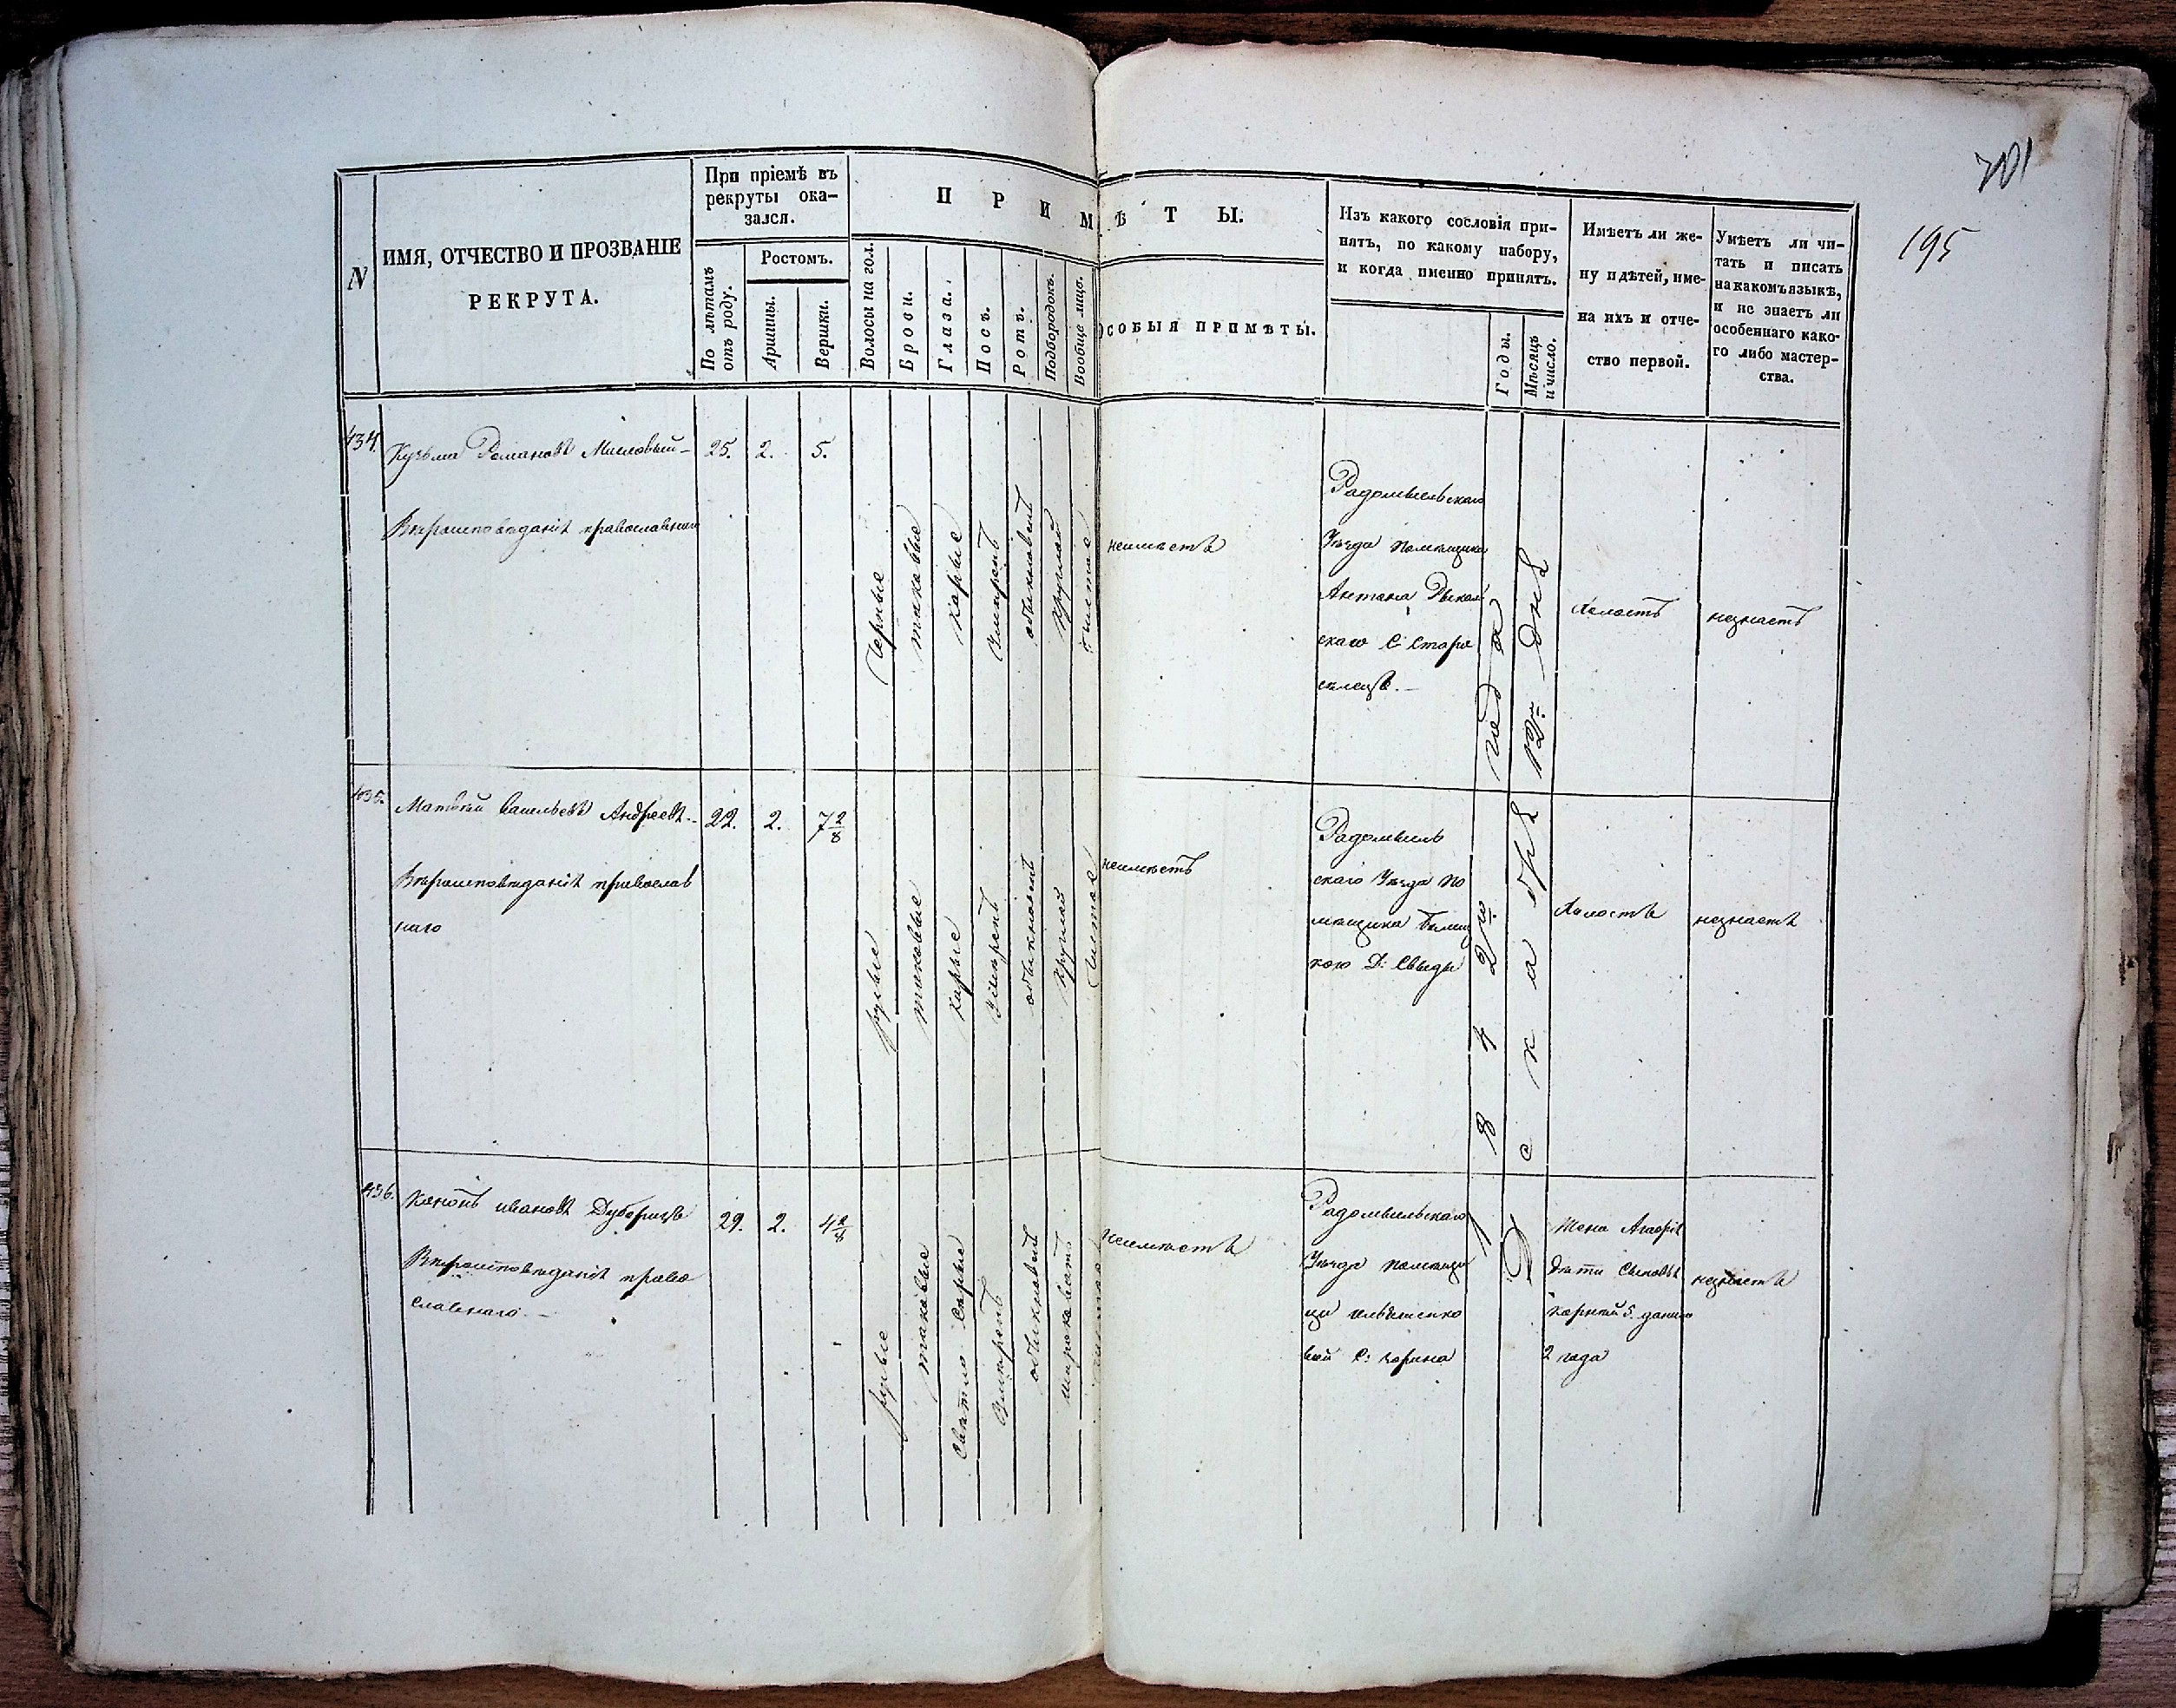 701
195
N
ИМЯ, ОТЧЕСТВО И ПРОЗВАНІЕ
РЕКРУТА.
При пріемѣ въ
рекруты ока-
зался.
По лѣтамъ
отъ роду.
Ростомъ.
Аршины.
Вершки.
П Р И М Ѣ Т Ы.
Волосы на гол.
Брови.
Глаза.
Носъ.
Ротъ.
Подбородокъ.
Вообще лицъ.
ОСОБЫЯ ПРИМѢТЫ.
Изъ какого сословія при-
нятъ, по какому набору,
и когда именно принятъ.
Годы.
Мѣсяцъ
и число.
Имѣетъ ли же-
ну и дѣтей, име-
на ихъ и отче-
ство первой.
Умѣетъ ли чи-
тать и писать
на какомъ языкѣ,
и не знаетъ ли
особеннаго како-
го либо мастер-
ства.
434.
Кузьма Романовъ Мисловый
Вѣроисповѣданія православнаго
25. 2. 5.
Черные
таковые
Карые
Умѣренъ
обыкновенъ
Круглой
Чистое
неимѣетъ
Радомысльскаго
Уѣзда помѣщика
Антона
скаго С: Старо
селецъ.
Холостъ
незнаетъ
435.
Матвѣй Васильевъ Андреевъ
Вѣроисповѣданія православ
наго
22. 2. 7 2/8
русые
таковые
Карые
Умѣренъ
обыкновенъ
Круглой
Чистое
неимѣетъ
Радомысль
скаго Уѣзда по
мѣщика
кого Д: Свыды
Холостъ
незнаетъ
436.
Кононъ Ивановъ Дуборизъ
Вѣроисповѣданія право
славнаго
29. 2. 4 2/8
русые
таковые
Свѣтло Сѣрые
Умѣренъ
обыкновенъ
широковатъ
чистое
Неимѣетъ
Радомысльскаго
Уѣзда помѣщи
цы
вой С:
1842го года
Декабря 12го дня
Жена Агафія
дѣти Сыновья
Корнѣй 5. Данило
2 года
незнаетъ